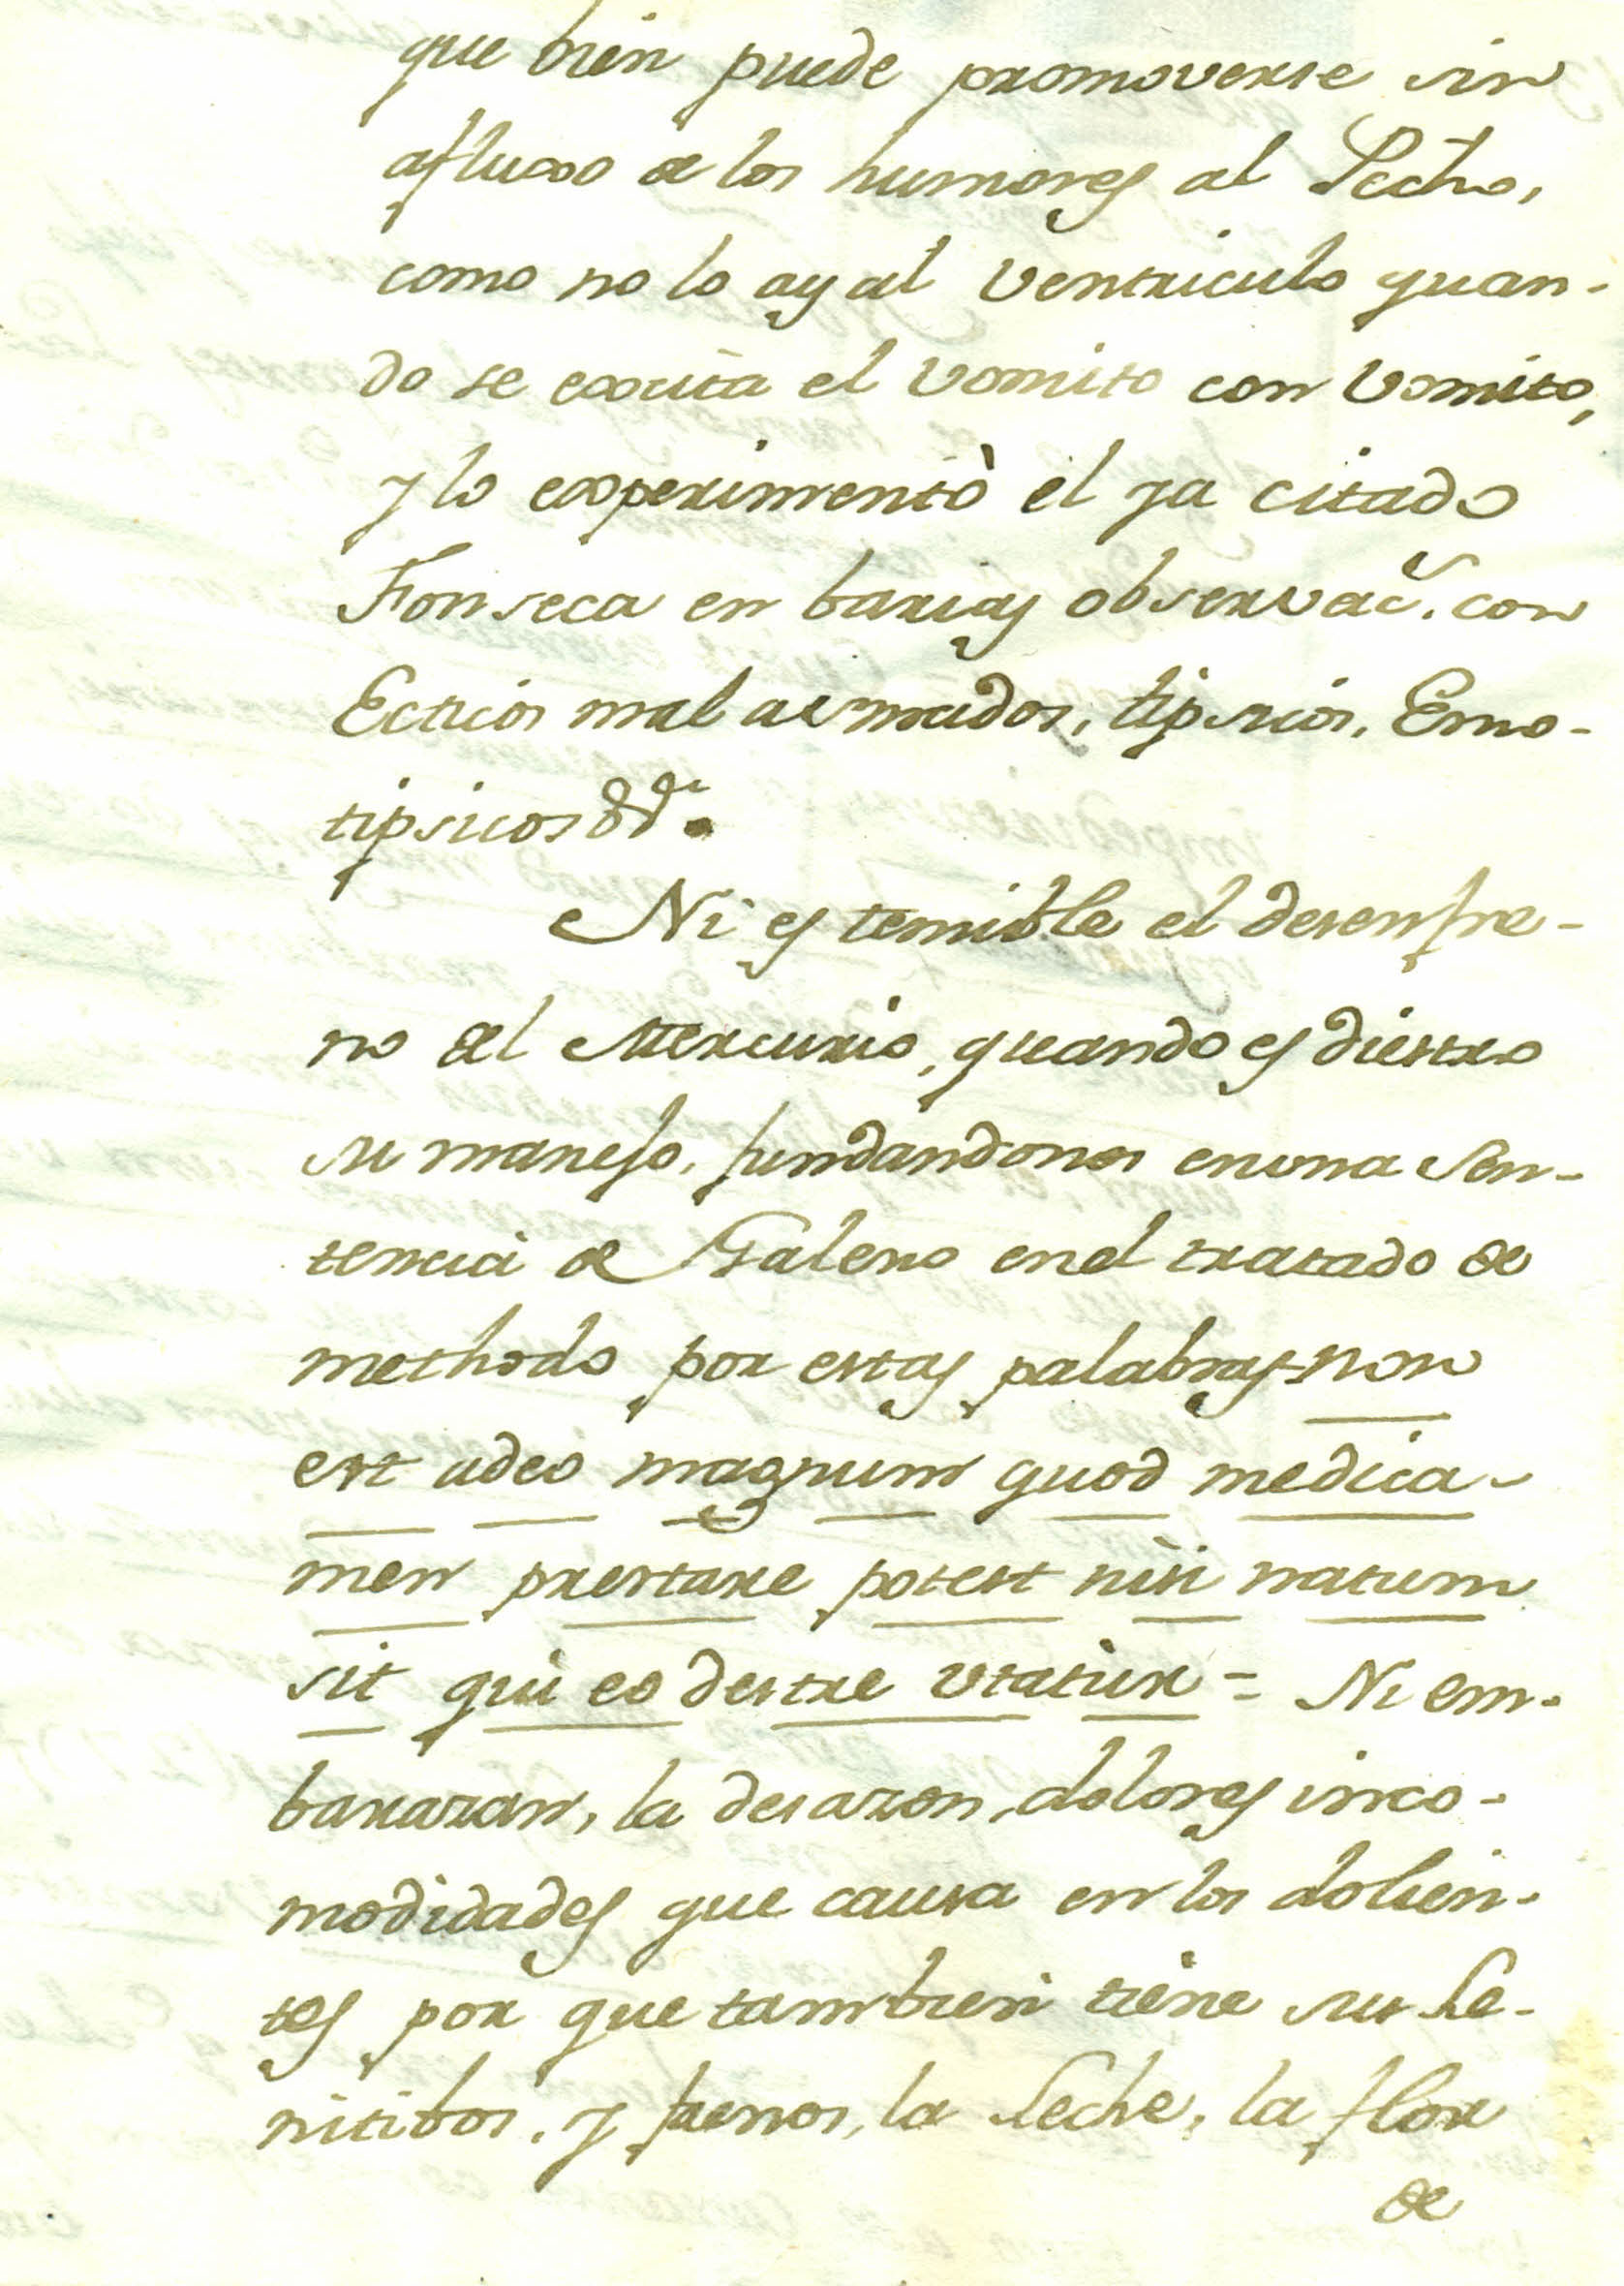 que bien puede promoverse sin
afluxo de los humores al Pecho,
como no lo ay al Ventriculo quan-
do se excita el vomito con Vomito,
y lo experimentò el ya citado
Fonseca en barias observac̃. con
Ecticos mal armados, tipsicos, Emo-
tipsicos &ª.
Ni es temible el desenfre-
no del Mercurio, quando es diestro
su manejo, fundandonos en una sen-
tencia de Galeno en el tratado de
methodo por estas palabras = non
est adeo magnum quod medica-
men prestare potest nisi natum
sit qui eo destre utatur = Ni em-
barazan, la desazon, dolores inco-
modidades que causa en los dolien-
tes por que tambien tiene sus Le-
nitibos, y frenos, la Leche, la flor
de